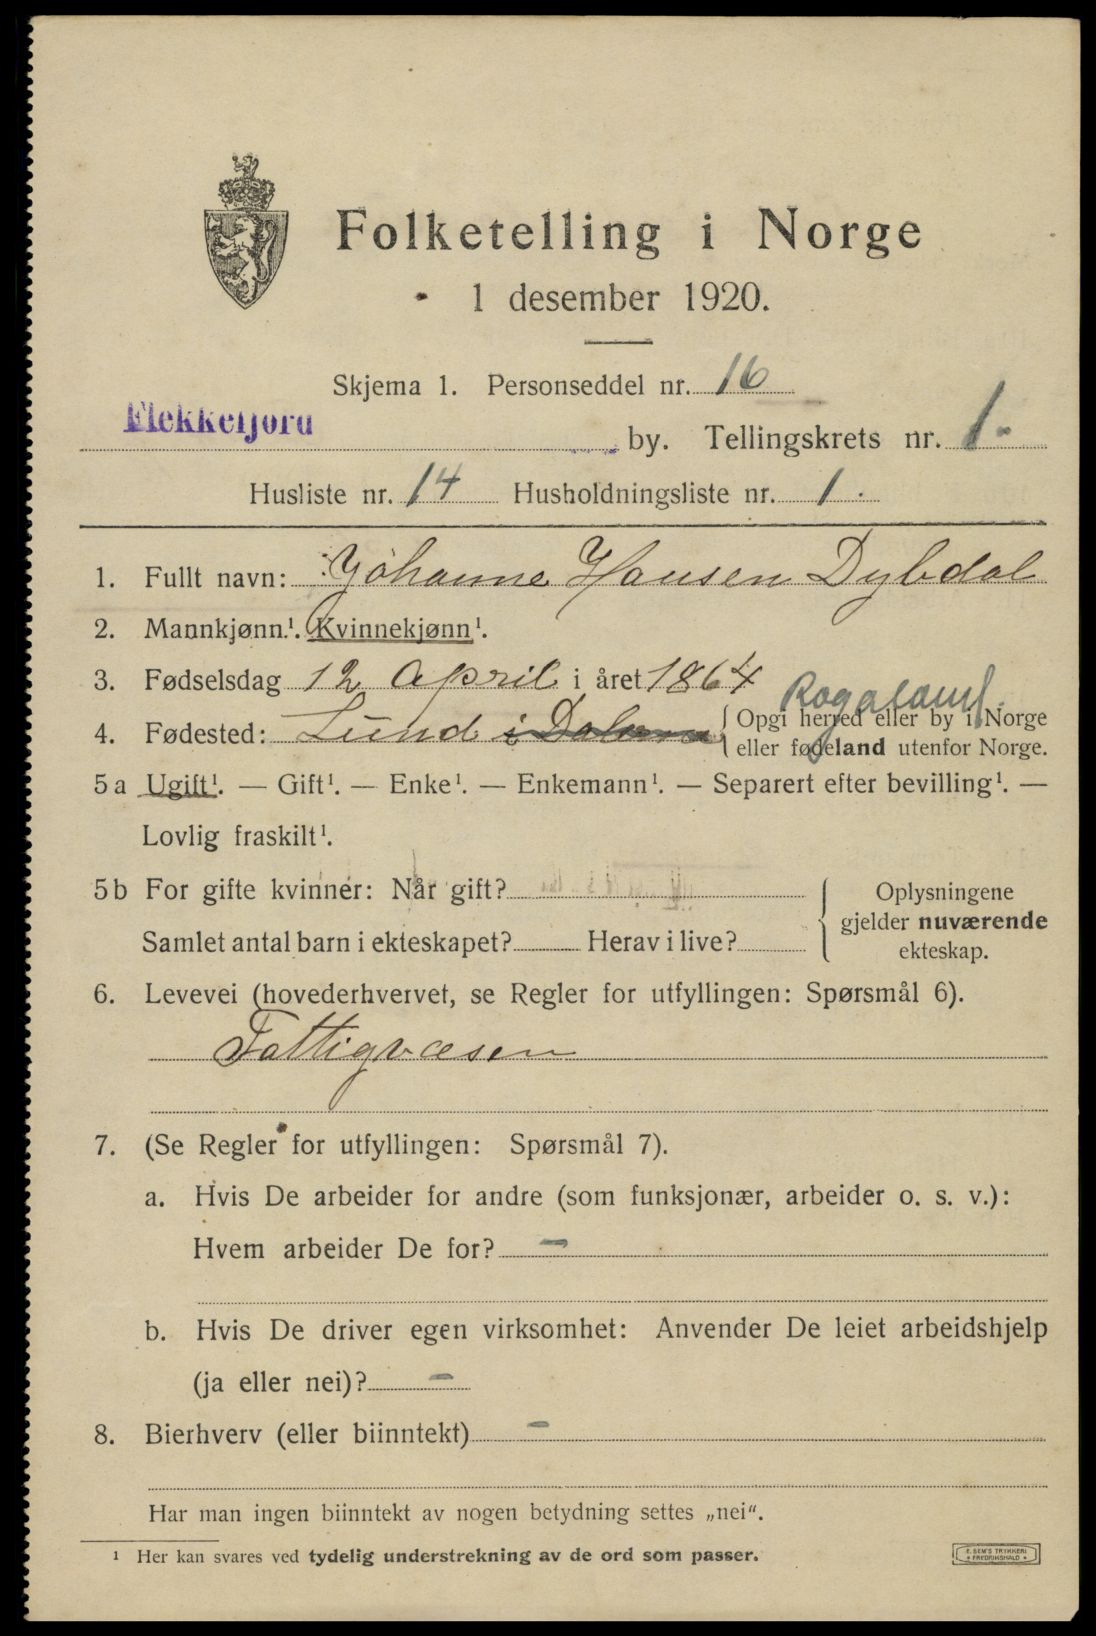 Folketelling i Norge
1 desember 1920.
Skjema 1. Personseddel nr. 16
Flekkefjord by. Tellingskrets nr. 1.
Husliste nr. 14 Husholdningsliste nr. 1.
1. Fullt navn: Johanne Hansen Dybdal
2. Mannkjønn.¹. Kvinnekjønn¹.
3. Fødselsdag 12 april i året 1864
Rogaland.
4. Fødested: Lund i { Opgi herred eller by i Norge
eller fødeland utenfor Norge.
5a Ugift¹. — Gift¹. — Enke¹. — Enkemann¹. — Separert efter bevilling¹. —
Lovlig fraskilt¹.
5b For gifte kvinner: Når gift? { Oplysningene
gjelder nuværende
Samlet antal barn i ekteskapet? Herav i live?
ekteskap.
6. Levevei (hovederhvervet, se Regler for utfyllingen: Spørsmål 6).
Fattigvæsen
7. (Se Regler for utfyllingen: Spørsmål 7).
a. Hvis De arbeider for andre (som funksjonær, arbeider o. s. v.):
Hvem arbeider De for? —
b. Hvis De driver egen virksomhet: Anvender De leiet arbeidshjelp
(ja eller nei)? —
8. Bierhverv (eller biinntekt) —
Har man ingen biinntekt av nogen betydning settes „nei“.
¹ Her kan svares ved tydelig understrekning av de ord som passer.
E. SEM'S TRYKKERI
• FREDRIKSHALD •